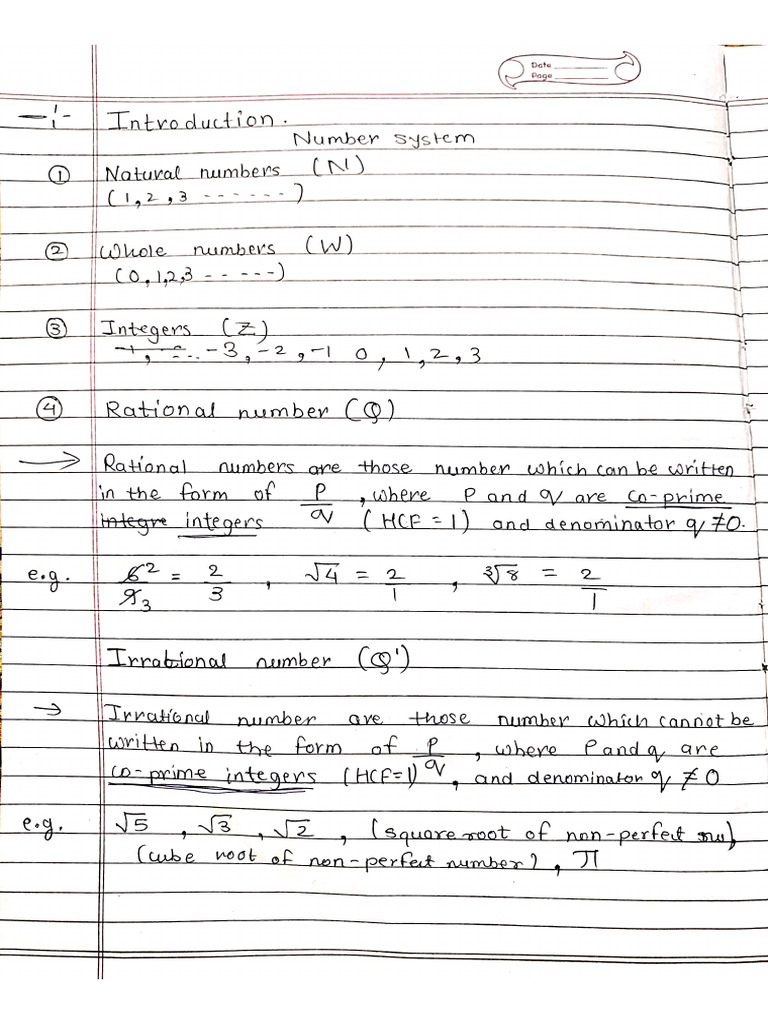 Date
Page
Introduction.
Number system
① Natural numbers (N)
(1, 2, 3 ------)
② Whole numbers (W)
(0, 1, 2, 3 -----)
③ Integers (Z)
-3, -2, -1 0, 1, 2, 3
④ Rational number (Q)
→ Rational numbers are those number which can be written
in the form of P/q, where P and q are Co-prime
integre integers (HCF = 1) and denominator q ≠ 0.
e.g. 6²/9₃ = 2/3, √4 = 2/1, ∛8 = 2/1
Irrational number (Q')
→ Irrational number are those number which cannot be
written in the form of P/q, where P and q are
co-prime integers (HCF=1), and denominator q ≠ 0
e.g. √5, √3, √2, (square root of non-perfect
(cube root of non-perfect number), π